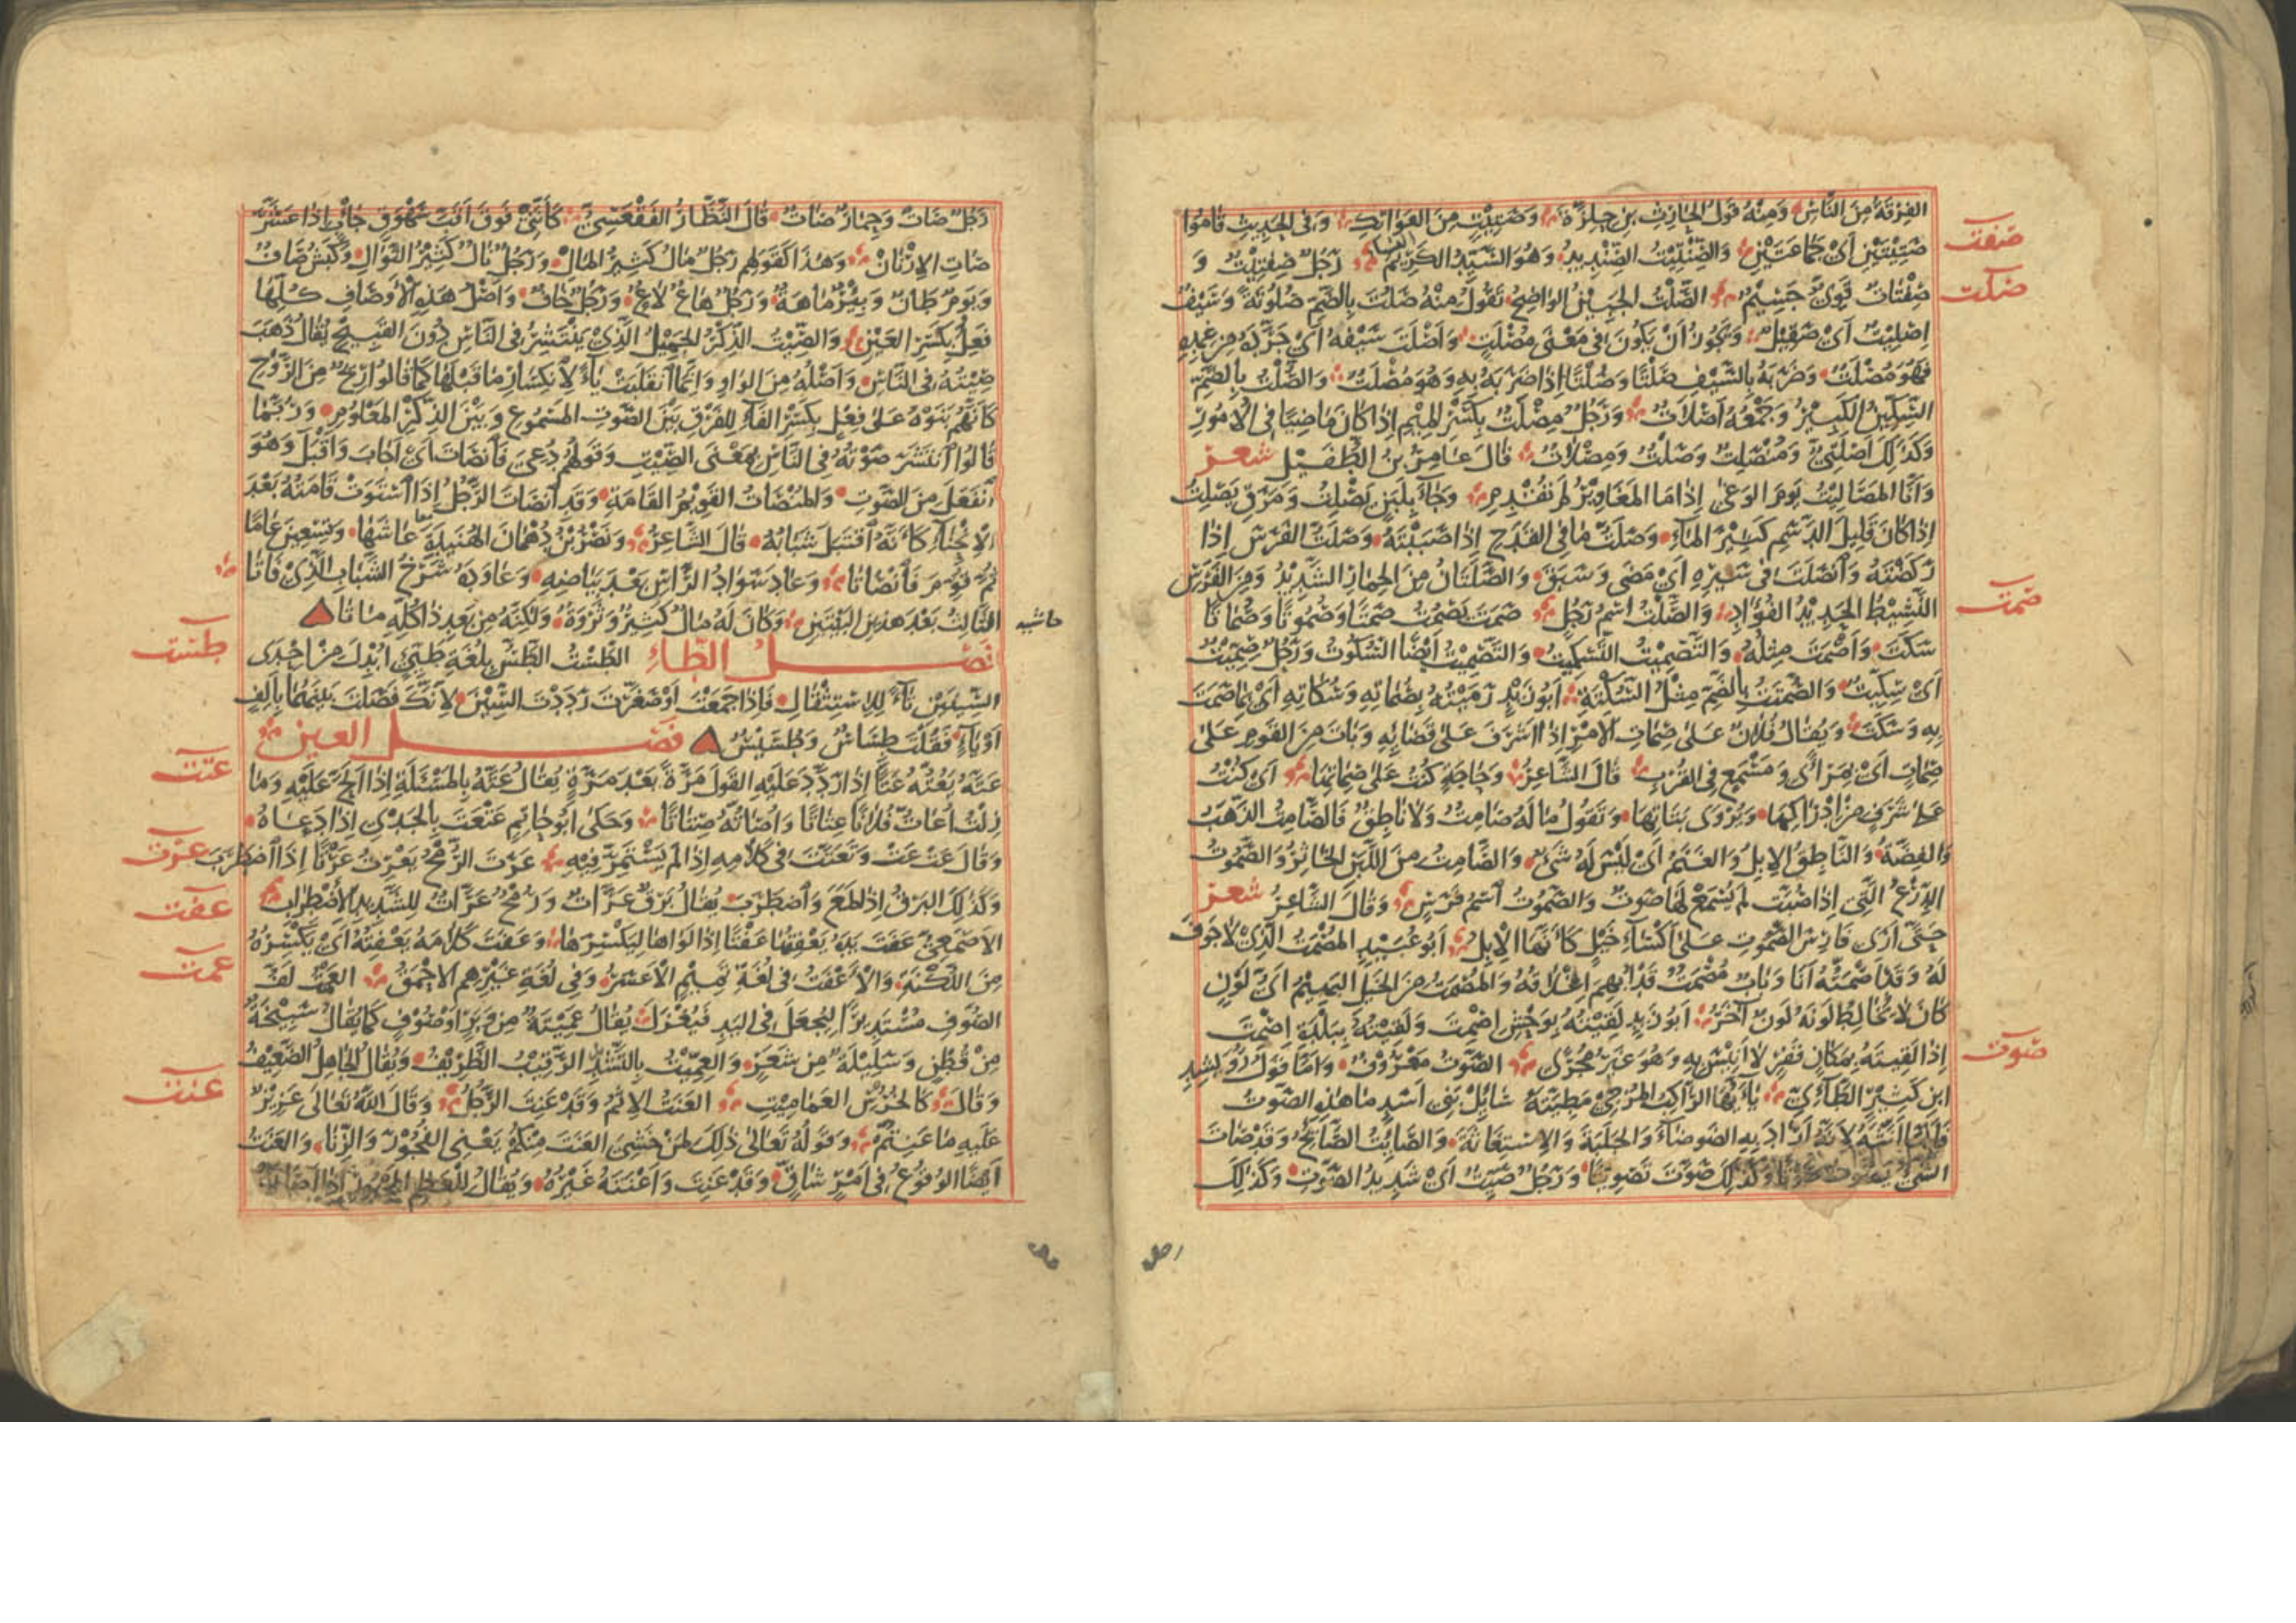 الفِرْقَةُ مِنَ النَّاسِ وَمِنْهُ قَوْلُ الحَارِثِ بنِ حِلِّزَةَ وَصَتِيتٍ مِنَ العَوَاتِكِ وَفِى الحَدِيثِ قَامُوا
صفت
صَتِيتَيْنِ أَىْ جَمَاعَتَيْنِ وَالصِّنْتِيتُ الصِّنْدِيدُ وَهُوَ السَّيِّدُ الكَرِيمُ رَجُلٌ صِفْتِيتٌ وَ
صلت
صِفْتَاتٌ قَوِىٌّ جَسِيمٌ الصَّلْتُ الجَبِينُ الوَاضِحُ تَقُولُ مِنْهُ صَلُتَ بِالضَّمِّ صُلُوتَةً وَسَيْفٌ
اِصْلِيتٌ أَىْ صَقِيلٌ وَيَجُوزُ أَنْ يَكُونَ فِى مَعْنَى مُصْلَتٍ وَأَصْلَتَ سَيْفَهُ أَىْ جَرَّدَهُ مِنْ غِمْدِهِ
فَهُوَ مُصْلَتٌ وَضَرَبَهُ بِالسَّيْفِ صَلْتًا وَصُلْتًا اِذَا ضَرَبَهُ بِهِ وَهُوَ مُصْلَتٌ وَالصُّلْتُ بِالضَّمِّ
السِّكِّينُ الكَبِيرُ وَجَمْعُهُ أَصْلَاتٌ وَرَجُلٌ مِصْلَتٌ بِكَسْرِ المِيمِ اِذَا كَانَ مَاضِيًا فِى الأُمُورِ
وَكَذَلِكَ أَصْلَتِىٌّ وَمُنْصَلِتٌ وَصَلْتٌ وَمِصْلَاتٌ قَالَ عَامِرُ بنُ الطُّفَيْلِ شعر
وَأَنَّا المَصَالِيتُ يَوْمَ الوَغَى اِذَا مَا المَغَاوِيرُ لَمْ تُقْدِمِ وَجَاءَ بِلَبَنٍ يَصْلِتُ وَمَرَقٍ يَصْلِتُ
اِذَا كَانَ قَلِيلَ الدَّسَمِ كَثِيرَ المَاءِ وَصَلَتُّ مَا فِى القَدَحِ اِذَا صَبَبْتَهُ وَصَلَتُّ الفَرَسَ اِذَا
رَكَضْتَهُ وَانْصَلَتَ فِى سَيْرِهِ أَىْ مَضَى وَسَبَقَ وَالصَّلَتَانُ مِنَ الحِمَارِ الشَّدِيدُ وَمِنَ الفَرَسِ
صمت
النَّشِيطُ الحَدِيدُ الفُؤَادِ وَالصَّلْتُ اسْمُ رَجُلٍ صَمَتَ يَصْمُتُ صَمْتًا وَصُمُوتًا وَصُمَاتًا
سَكَتَ وَأَصْمَتَ مِثْلُهُ وَالتَّصْمِيتُ التَّسْكِيتُ وَالتَّصْمِيتُ أَيْضًا السُّكُوتُ وَرَجُلٌ صِمِّيتٌ
أَىْ سِكِّيتٌ وَالصُّمْتَةُ بِالضَّمِّ مِثْلُ السُّكْتَةِ أَبُو زَيْدٍ رَمَيْتُهُ بِصُمَاتِهِ وَسُكَاتِهِ أَىْ بِمَا صَمَتَ
بِهِ وَسَكَتَ وَيُقَالُ فُلَانٌ عَلَى صِمَاتِ الأَمْرِ اِذَا أَشْرَفَ عَلَى قَضَائِهِ وَبَاتَ مِنَ القَوْمِ عَلَى
صِمَاتٍ أَىْ بِمَرْأًى وَمَسْمَعٍ فِى القُرْبِ قَالَ الشَّاعِرُ وَحَاجَةٍ كُنْتُ عَلَى صِمَاتِهَا أَىْ كُنْتُ
عَلَى شَرَفٍ مِنْ اِدْرَاكِهَا وَيُرْوَى بَتَاتِهَا وَتَقُولُ مَا لَهُ صَامِتٌ وَلَا نَاطِقٌ فَالصَّامِتُ الذَّهَبُ
وَالفِضَّةُ وَالنَّاطِقُ الاِبِلُ وَالغَنَمُ أَىْ لَيْسَ لَهُ شَىْءٌ وَالصَّامِتُ مِنَ اللَّبَنِ الخَاثِرُ وَالصَّمُوتُ
الدِّرْعُ الَّتِى اِذَا صُبَّتْ لَمْ يُسْمَعْ لَهَا صَوْتٌ وَالصَّمُوتُ اسْمُ فَرَسٍ وَقَالَ الشَّاعِرُ شعر
حَتَّى أَرَى فَارِسَ الصَّمُوتِ عَلَى أَكْسَاءِ خَيْلٍ كَأَنَّهَا الاِبِلُ أَبُو عُبَيْدٍ المُصْمَتُ الَّذِى لَا جَوْفَ
لَهُ وَقَدْ أَصْمَتُّهُ أَنَا وَبَابٌ مُصْمَتٌ قَدْ أُبْهِمَ اِغْلَاقُهُ وَالمُصْمَتُ مِنَ الخَيْلِ البَهِيمُ أَىُّ لَوْنٍ
كَانَ لَا يُخَالِطُ لَوْنَهُ لَوْنٌ آخَرُ أَبُو زَيْدٍ لَقِيتُهُ بِوَحْشِ اِصْمِتَ وَلَقِيتُهُ بِبَلْدَةِ اِصْمِتَ
صوت
اِذَا لَقِيتَهُ بِمَكَانٍ قَفْرٍ لَا أَنِيسَ بِهِ وَهُوَ غَيْرُ مُجْرًى الصَّوْتُ مَعْرُوفٌ وَأَمَّا قَوْلُ رُوَيْشِدِ
ابنِ كَثِيرٍ الطَّائِىِّ يَا أَيُّهَا الرَّاكِبُ المُزْجِى مَطِيَّتَهُ سَائِلْ بَنِى أَسَدٍ مَا هَذِهِ الصَّوْتُ
فَاِنَّمَا أَنَّثَهُ لِأَنَّهُ أَرَادَ بِهِ الضَّوْضَاءَ وَالجَلَبَةَ وَالاِسْتِغَاثَةَ وَالصَّائِتُ الصَّائِحُ وَقَدْ صَاتَ
الشَّىْءُ يَصُوتُ صَوْتًا وَكَذَلِكَ صَوَّتَ تَصْوِيتًا وَرَجُلٌ صَيِّتٌ أَىْ شَدِيدُ الصَّوْتِ وَكَذَلِكَ
رَجُلٌ صَاتٌ وَحِمَارٌ صَاتٌ قَالَ النَّظَّارُ الفَقْعَسِىُّ كَأَنَّنِى فَوْقَ أَقَبَّ سَهْوَقٍ جَأْبٍ اِذَا عَشَّرَ
صَاتِ الاِرْنَانْ وَهَذَا كَقَوْلِهِمْ رَجُلٌ مَالٌ كَثِيرُ المَالِ وَرَجُلٌ نَالٌ كَثِيرُ النَّوَالِ وَكَبْشٌ صَافٌ
وَيَوْمٌ طَانٌ وَبِئْرٌ مَاهَةٌ وَرَجُلٌ هَاعٌ لَاعٌ وَرَجُلٌ خَافٌ وَأَصْلُ هَذِهِ الأَوْصَافِ كُلِّهَا
فَعِلٌ بِكَسْرِ العَيْنِ وَالصِّيتُ الذِّكْرُ الجَمِيلُ الَّذِى يَنْتَشِرُ فِى النَّاسِ دُونَ القَبِيحِ يُقَالُ ذَهَبَ
صِيتُهُ فِى النَّاسِ وَأَصْلُهُ مِنَ الوَاوِ وَاِنَّمَا انْقَلَبَتْ يَاءً لِانْكِسَارِ مَا قَبْلَهَا كَمَا قَالُوا رِيحٌ مِنَ الرَّوْحِ
كَأَنَّهُمْ بَنَوْهُ عَلَى فِعْلٍ بِكَسْرِ الفَاءِ لِلْفَرْقِ بَيْنَ الصَّوْتِ المَسْمُوعِ وَبَيْنَ الذِّكْرِ المَعْلُومِ وَرُبَّمَا
قَالُوا انْتَشَرَ صَوْتُهُ فِى النَّاسِ بِمَعْنَى الصِّيتِ وَقَوْلُهُمْ دُعِىَ فَانْصَاتَ أَىْ أَجَابَ وَأَقْبَلَ وَهُوَ
انْفَعَلَ مِنَ الصَّوْتِ وَالمُنْصَاتُ القَوِيمُ القَامَةِ وَقَدِ انْصَاتَ الرَّجُلُ اِذَا اسْتَوَتْ قَامَتُهُ بَعْدَ
الاِنْحِنَاءِ كَأَنَّهُ اقْتَبَلَ شَبَابُهُ قَالَ الشَّاعِرُ وَنَصْرُ بْنُ دُهْمَانَ الهُنَيْدَةَ عَاشَهَا وَتِسْعِينَ عَامًا
ثُمَّ قُوِّمَ فَانْصَاتَا وَعَادَ سَوَادُ الرَّأْسِ بَعْدَ بَيَاضِهِ وَعَاوَدَهُ شَرْخُ الشَّبَابِ الَّذِى فَاتَا
حاشيه
الثَّالِثُ بَعْدَ هَذَيْنِ البَيْتَيْنِ وَكَانَ لَهُ مَالٌ كَثِيرٌ وَثَرْوَةٌ وَلَكِنَّهُ مِنْ بَعْدِ ذَا كُلِّهِ مَاتَا
طست
فصل الطَّاءِ الطَّسْتُ الطَّسُّ بِلُغَةِ طَيِّئٍ أُبْدِلَ مِنْ اِحْدَى
السِّينَيْنِ تَاءً لِلاِسْتِثْقَالِ فَاِذَا جَمَعْتَ أَوْ صَغَّرْتَ رَدَدْتَ السِّينَ لِأَنَّكَ فَصَلْتَ بَيْنَهُمَا بِأَلِفٍ
أَوْ يَاءٍ فَقُلْتَ طِسَاسٌ وَطُسَيْسٌ فصل العين
عتت
عَتَّهُ يَعُتُّهُ عَتًّا اِذَا رَدَّدَ عَلَيْهِ القَوْلَ مَرَّةً بَعْدَ مَرَّةٍ يُقَالُ عَتَّهُ بِالمَسْئَلَةِ اِذَا أَلَحَّ عَلَيْهِ وَمَا
زِلْتُ أُعَاتُّ فُلَانًا عِتَاتًا وَأُصَاتُّهُ صِتَاتًا وَحَكَى أَبُو حَاتِمٍ عَتْعَتَ بِالجَدْىِ اِذَا دَعَاهُ
عرت
وَقَالَ عَتْ عَتْ وَتَعَتَّتَ فِى كَلَامِهِ اِذَا لَمْ يَسْتَمِرَّ فِيهِ عَرِتَ الرُّمْحُ يَعْرِتُ عَرْتًا اِذَا اضْطَرَبَ
عفت
وَكَذَلِكَ البَرْقُ اِذَا لَمَعَ وَاضْطَرَبَ يُقَالُ بَرْقٌ عَرَّاتٌ وَرُمْحٌ عَرَّاتٌ لِلشَّدِيدِ الاِضْطِرَابِ
الأَصْمَعِىُّ عَفَتَ يَدَهُ يَعْفِتُهَا عَفْتًا اِذَا لَوَاهَا لِيَكْسِرَهَا وَعَفَتَ كَلَامَهُ يَعْفِتُهُ أَىْ يَكْسِرُهُ
عمت
مِنَ اللُّكْنَةِ وَالأَعْفَتُ فِى لُغَةِ تَمِيمٍ الأَعْسَرُ وَفِى لُغَةِ غَيْرِهِمُ الأَحْمَقُ العَمْتُ لَفُّ
الصُّوفِ مُسْتَدِيرًا لِيُجْعَلَ فِى اليَدِ فَيُغْزَلَ يُقَالُ عَمِيتَةٌ مِنْ وَبَرٍ أَوْ صُوفٍ كَمَا يُقَالُ سَبِيخَةٌ
مِنْ قُطْنٍ وَسَلِيلَةٌ مِنْ شَعَرٍ وَالعِمِّيتُ بِالتَّشْدِيدِ الرَّقِيبُ الظَّرِيفُ وَيُقَالُ الجَاهِلُ الضَّعِيفُ
عنت
وَقَالَ كَالخُرْسِ العَمَامِيتِ العَنَتُ الاِثْمُ وَقَدْ عَنِتَ الرَّجُلُ وَقَالَ اللهُ تَعَالَى عَزِيزٌ
عَلَيْهِ مَا عَنِتُّمْ وَقَوْلُهُ تَعَالَى ذَلِكَ لِمَنْ خَشِىَ العَنَتَ مِنْكُمْ يَعْنِى الفُجُورَ وَالزِّنَا وَالعَنَتُ
أَيْضًا الوُقُوعُ فِى أَمْرٍ شَاقٍّ وَقَدْ عَنِتَ وَأَعْنَتَهُ غَيْرُهُ وَيُقَالُ لِلْعَظْمِ المَجْبُورِ اِذَا أَصَابَهُ